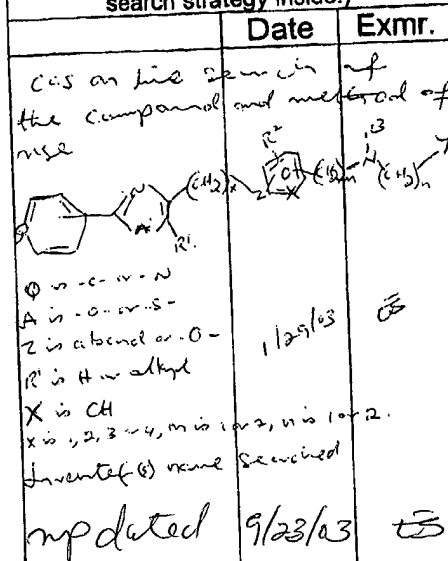 search strategy inside.)
Date Exmr.
cas on line search of
the compound and method of
use
R²
(CH2)x Z (CH2)m N (CH2)n Y
N
A
Q
R¹
X
R3
Q is -C- or -N
A is -O- or -S-
Z is a bond or -O- 1/29/03
R¹ is H or alkyl
X is CH
x is 1, 2, 3 or 4, m is 1 or 2, n is 1 or 2.
Inventor(s) name searched
updated 9/23/03